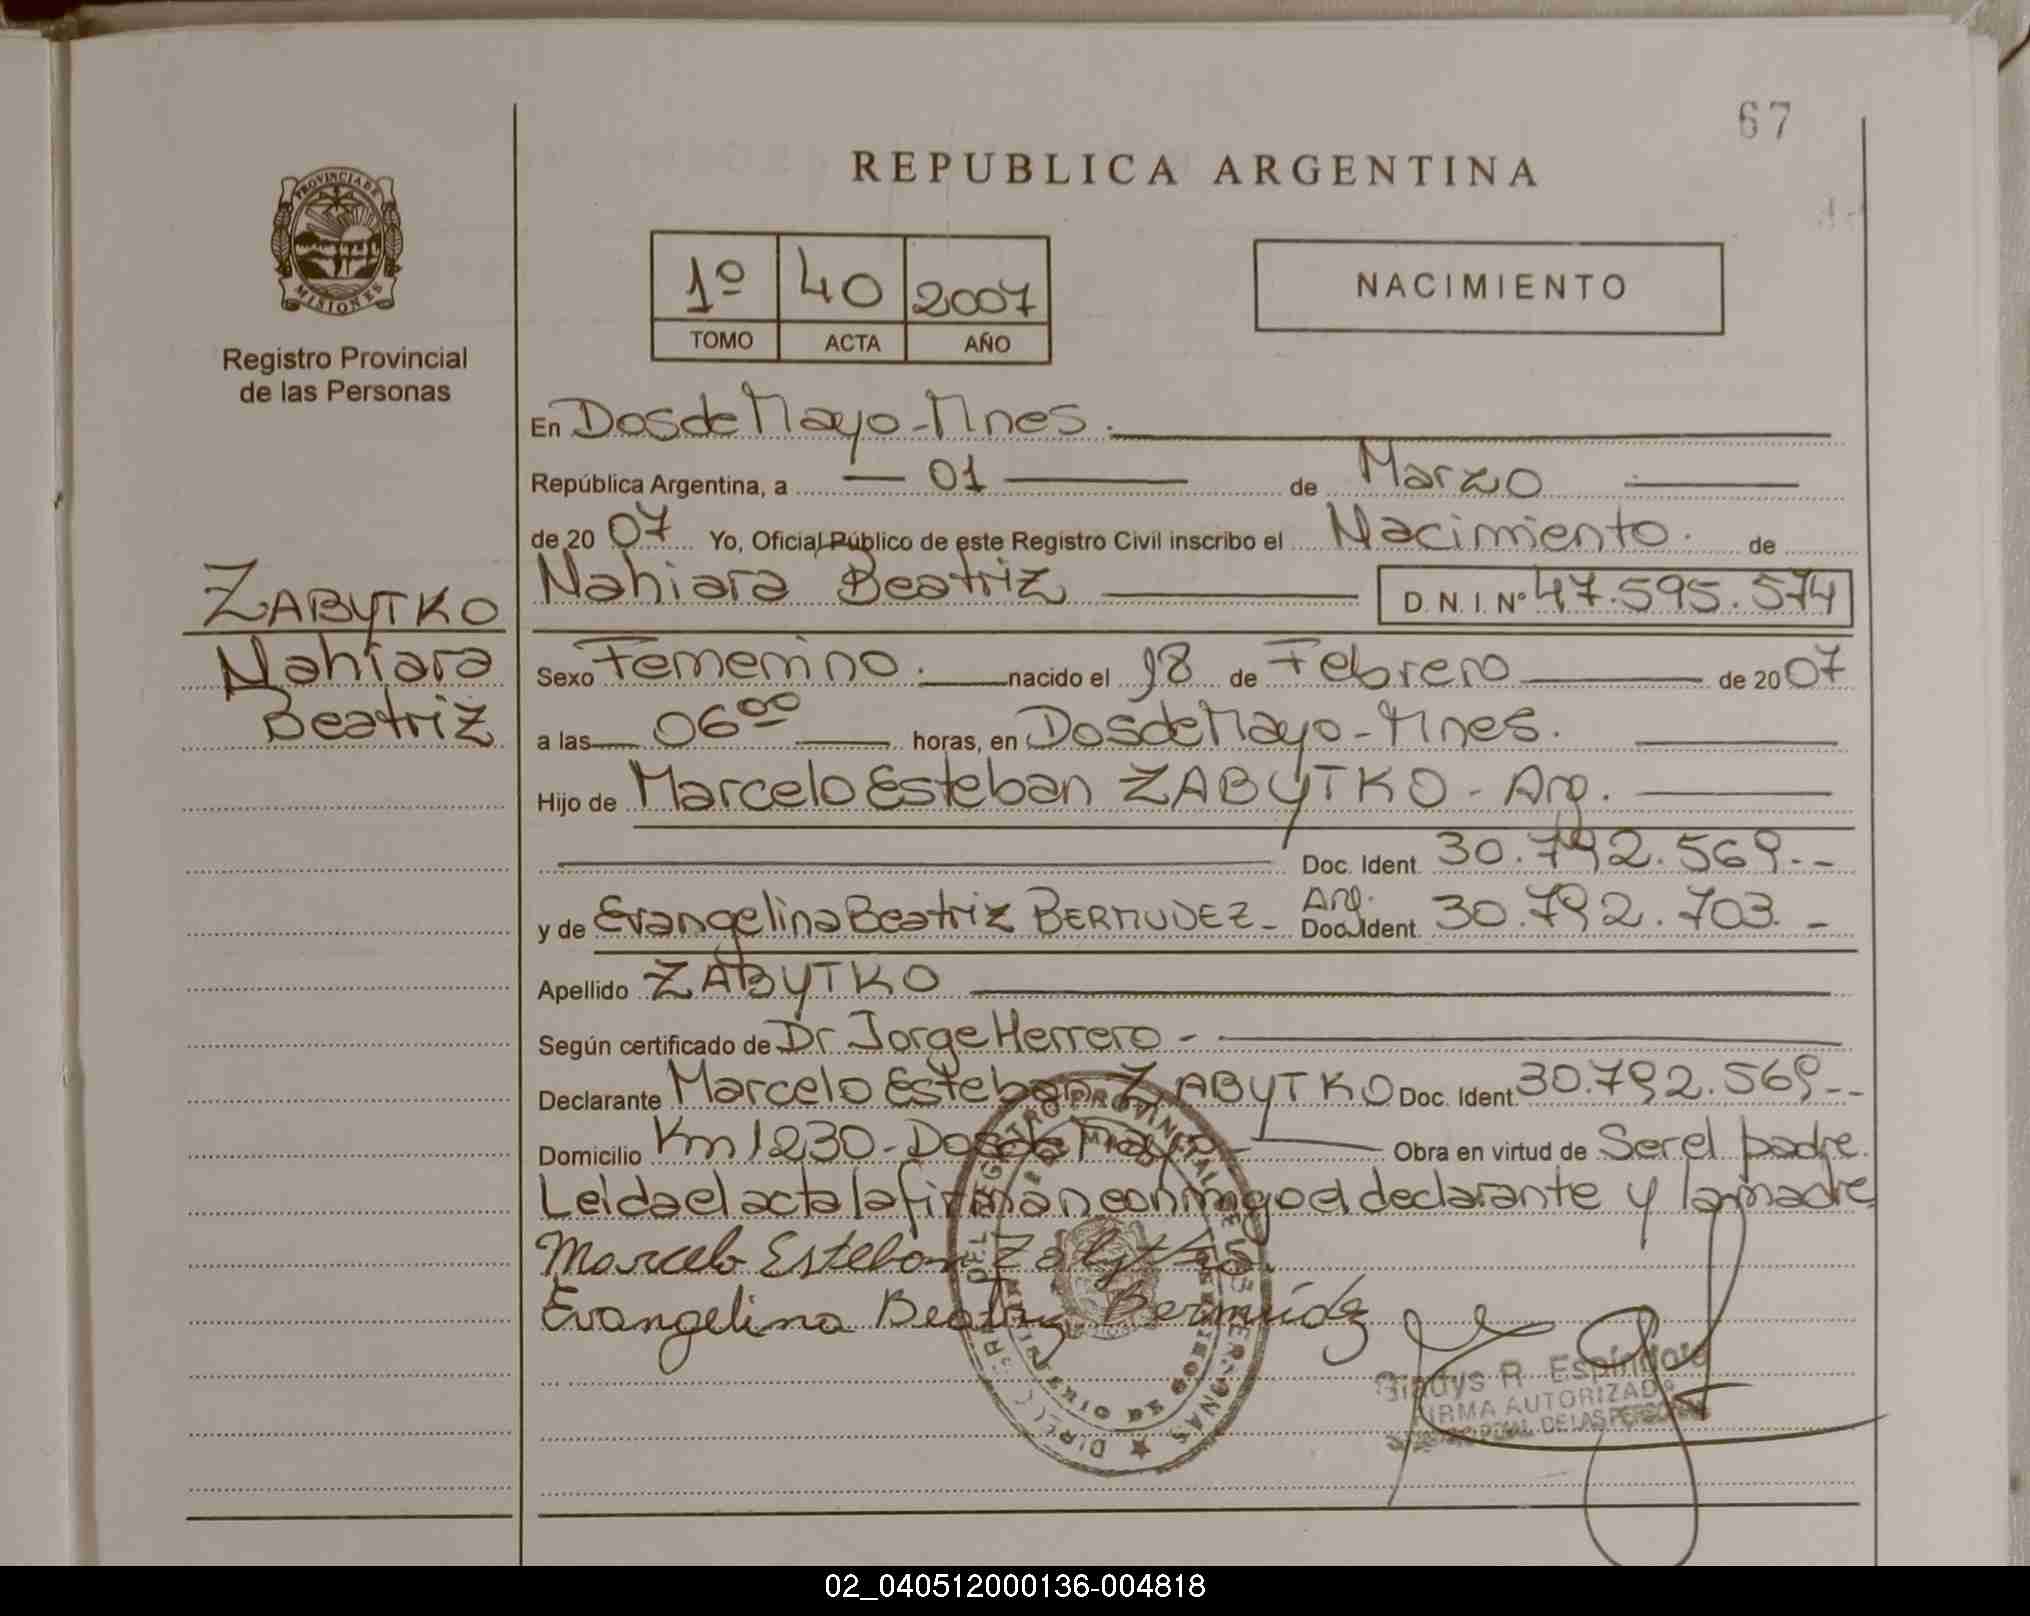 67
REPUBLICA ARGENTINA
PROVINCIA DE
MISIONES
1º 40 2007
TOMO ACTA AÑO
NACIMIENTO
Registro Provincial
de las Personas
En Dos de Mayo - Mnes.
República Argentina, a 01 de Marzo
de 2007 Yo, Oficial Público de este Registro Civil inscribo el Nacimiento. de
ZABYTKO
Nahiara
Beatriz
Nahiara Beatriz D.N.I. Nº 47.595.574
Sexo Femenino. nacido el 18 de Febrero de 2007
a las 06ºº horas, en Dos de Mayo - Mnes.
Hijo de Marcelo Esteban ZABYTKO - Arg.
Doc. Ident. 30.792.569.--
y de Evangelina Beatriz BERMUDEZ - Arg. Doc. Ident. 30.792.703. -
Apellido ZABYTKO
Según certificado de Dr Jorge Herrero -
Declarante Marcelo Esteban ZABYTKO Doc. Ident. 30.792.569--
Domicilio Km 1230 - Dos de Mayo - Obra en virtud de Ser el padre.
Leida el acta la firman conmigo el declarante y la madre
Marcelo Esteban Zabytko.
Evangelina Beatriz Bermúdez
Gladys R. Espíndola
FIRMA AUTORIZADA
DE LAS PERSONAS
02_040512000136-004818